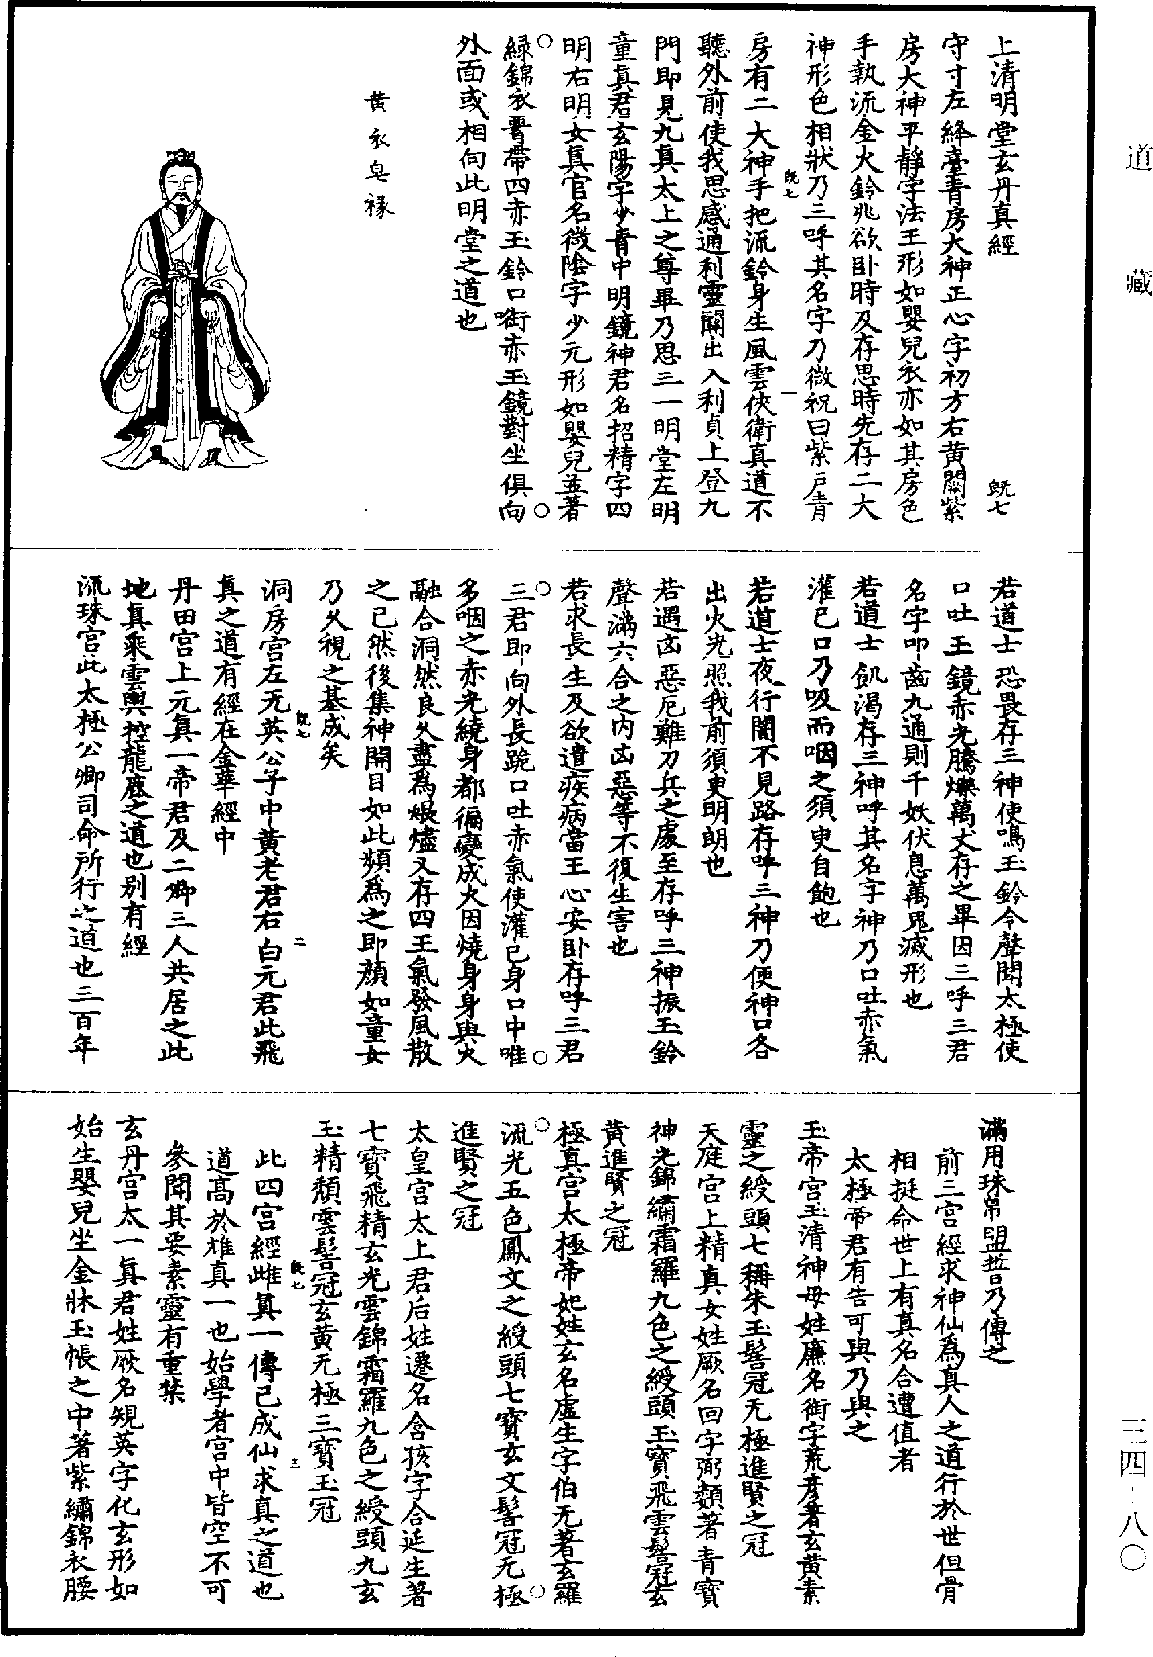 道藏
上清明堂玄丹真經
既七
守寸左絳臺青房大神正心字初方右黃闕紫
房大神平靜字法王形如嬰兒衣亦如其房色
手執流金火鈴兆欲卧時及存思時先存二大
神形色相狀乃三呼其名字乃微祝曰紫戶青
既七
一
房有二大神手把流鈴身生風雲俠衛真道不
聽外前使我思感通利靈關出入利貞上登九
門即見九真太上之尊畢乃思三一明堂左明
童真君玄陽字少青中明鏡神君名招精字四
明右明女真官名微陰字少元形如嬰兒並著
綠錦衣腰帶四赤玉鈴口銜赤玉鏡對坐俱向
外面或相向此明堂之道也
黃衣皂褖
若道士恐畏存三神使鳴玉鈴令聲聞太極使
口吐玉鏡赤光騰爍萬丈存之畢因三呼三君
名字叩齒九通則千妖伏息萬鬼滅形也
若道士飢渴存三神呼其名字神乃口吐赤氣
灌己口乃吸而咽之須臾自飽也
若道士夜行闇不見路存呼三神乃使神口各
出火光照我前須臾明朗也
若遇凶惡厄難刀兵之處至存呼三神振玉鈴
聲滿六合之內凶惡等不復生害也
若求長生及欲遣疾病當正心安卧存呼三君
三君即向外長跪口吐赤氣使灌己身口中唯
多咽之赤光繞身都徧變成火因燒身身與火
融合洞然良久盡為煨燼又存四王氣發風散
之已然後集神開目如此頻為之即顏如童女
乃久視之基成矣
既七
二
洞房宮左无英公子中黃老君右白元君此飛
真之道有經在金華經中
丹田宮上元真一帝君及二卿三人共居之此
地真乘雲輿控龍鹿之道也別有經
流珠宮此太極公卿司命所行之道也三百年
滿用珠帛盟誓乃傳之
前二宮經求神仙為真人之道行於世但骨
相挺命世上有真名合遭值者
太極帝君有告可與乃與之
玉帝宮玉清神母姓廉名銜字荒彥著玄黃素
靈之綬頭七稱朱玉髻冠无極進賢之冠
天庭宮上精真女姓厥名回字粥顏著青寶
神光錦繡霜羅九色之綬頭玉寶飛雲髻冠玄
黃進賢之冠
極真宮太極帝妃姓玄名虛生字伯无著玄羅
流光五色鳳文之綬頭七寶玄文髻冠无極
進賢之冠
太皇宮太上君后姓遷名含孩字合延生著
七寶飛精玄光雲錦霜羅九色之綬頭九玄
玉精頹雲髻冠玄黃无極三寶玉冠
此四宮經雌真一傳已成仙求真之道也
既七
三
道高於雄真一也始學者宮中皆空不可
參聞其要素靈有重禁
玄丹宮太一真君姓厥名規英字化玄形如
始生嬰兒坐金牀玉帳之中著紫繡錦衣腰
三四‐八〇